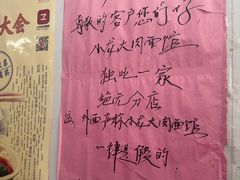 大会
尊敬的客户您们好
小龙大肉面馆
独此一家
绝无分店
注：外面声称小龙大肉面馆
一律是假的